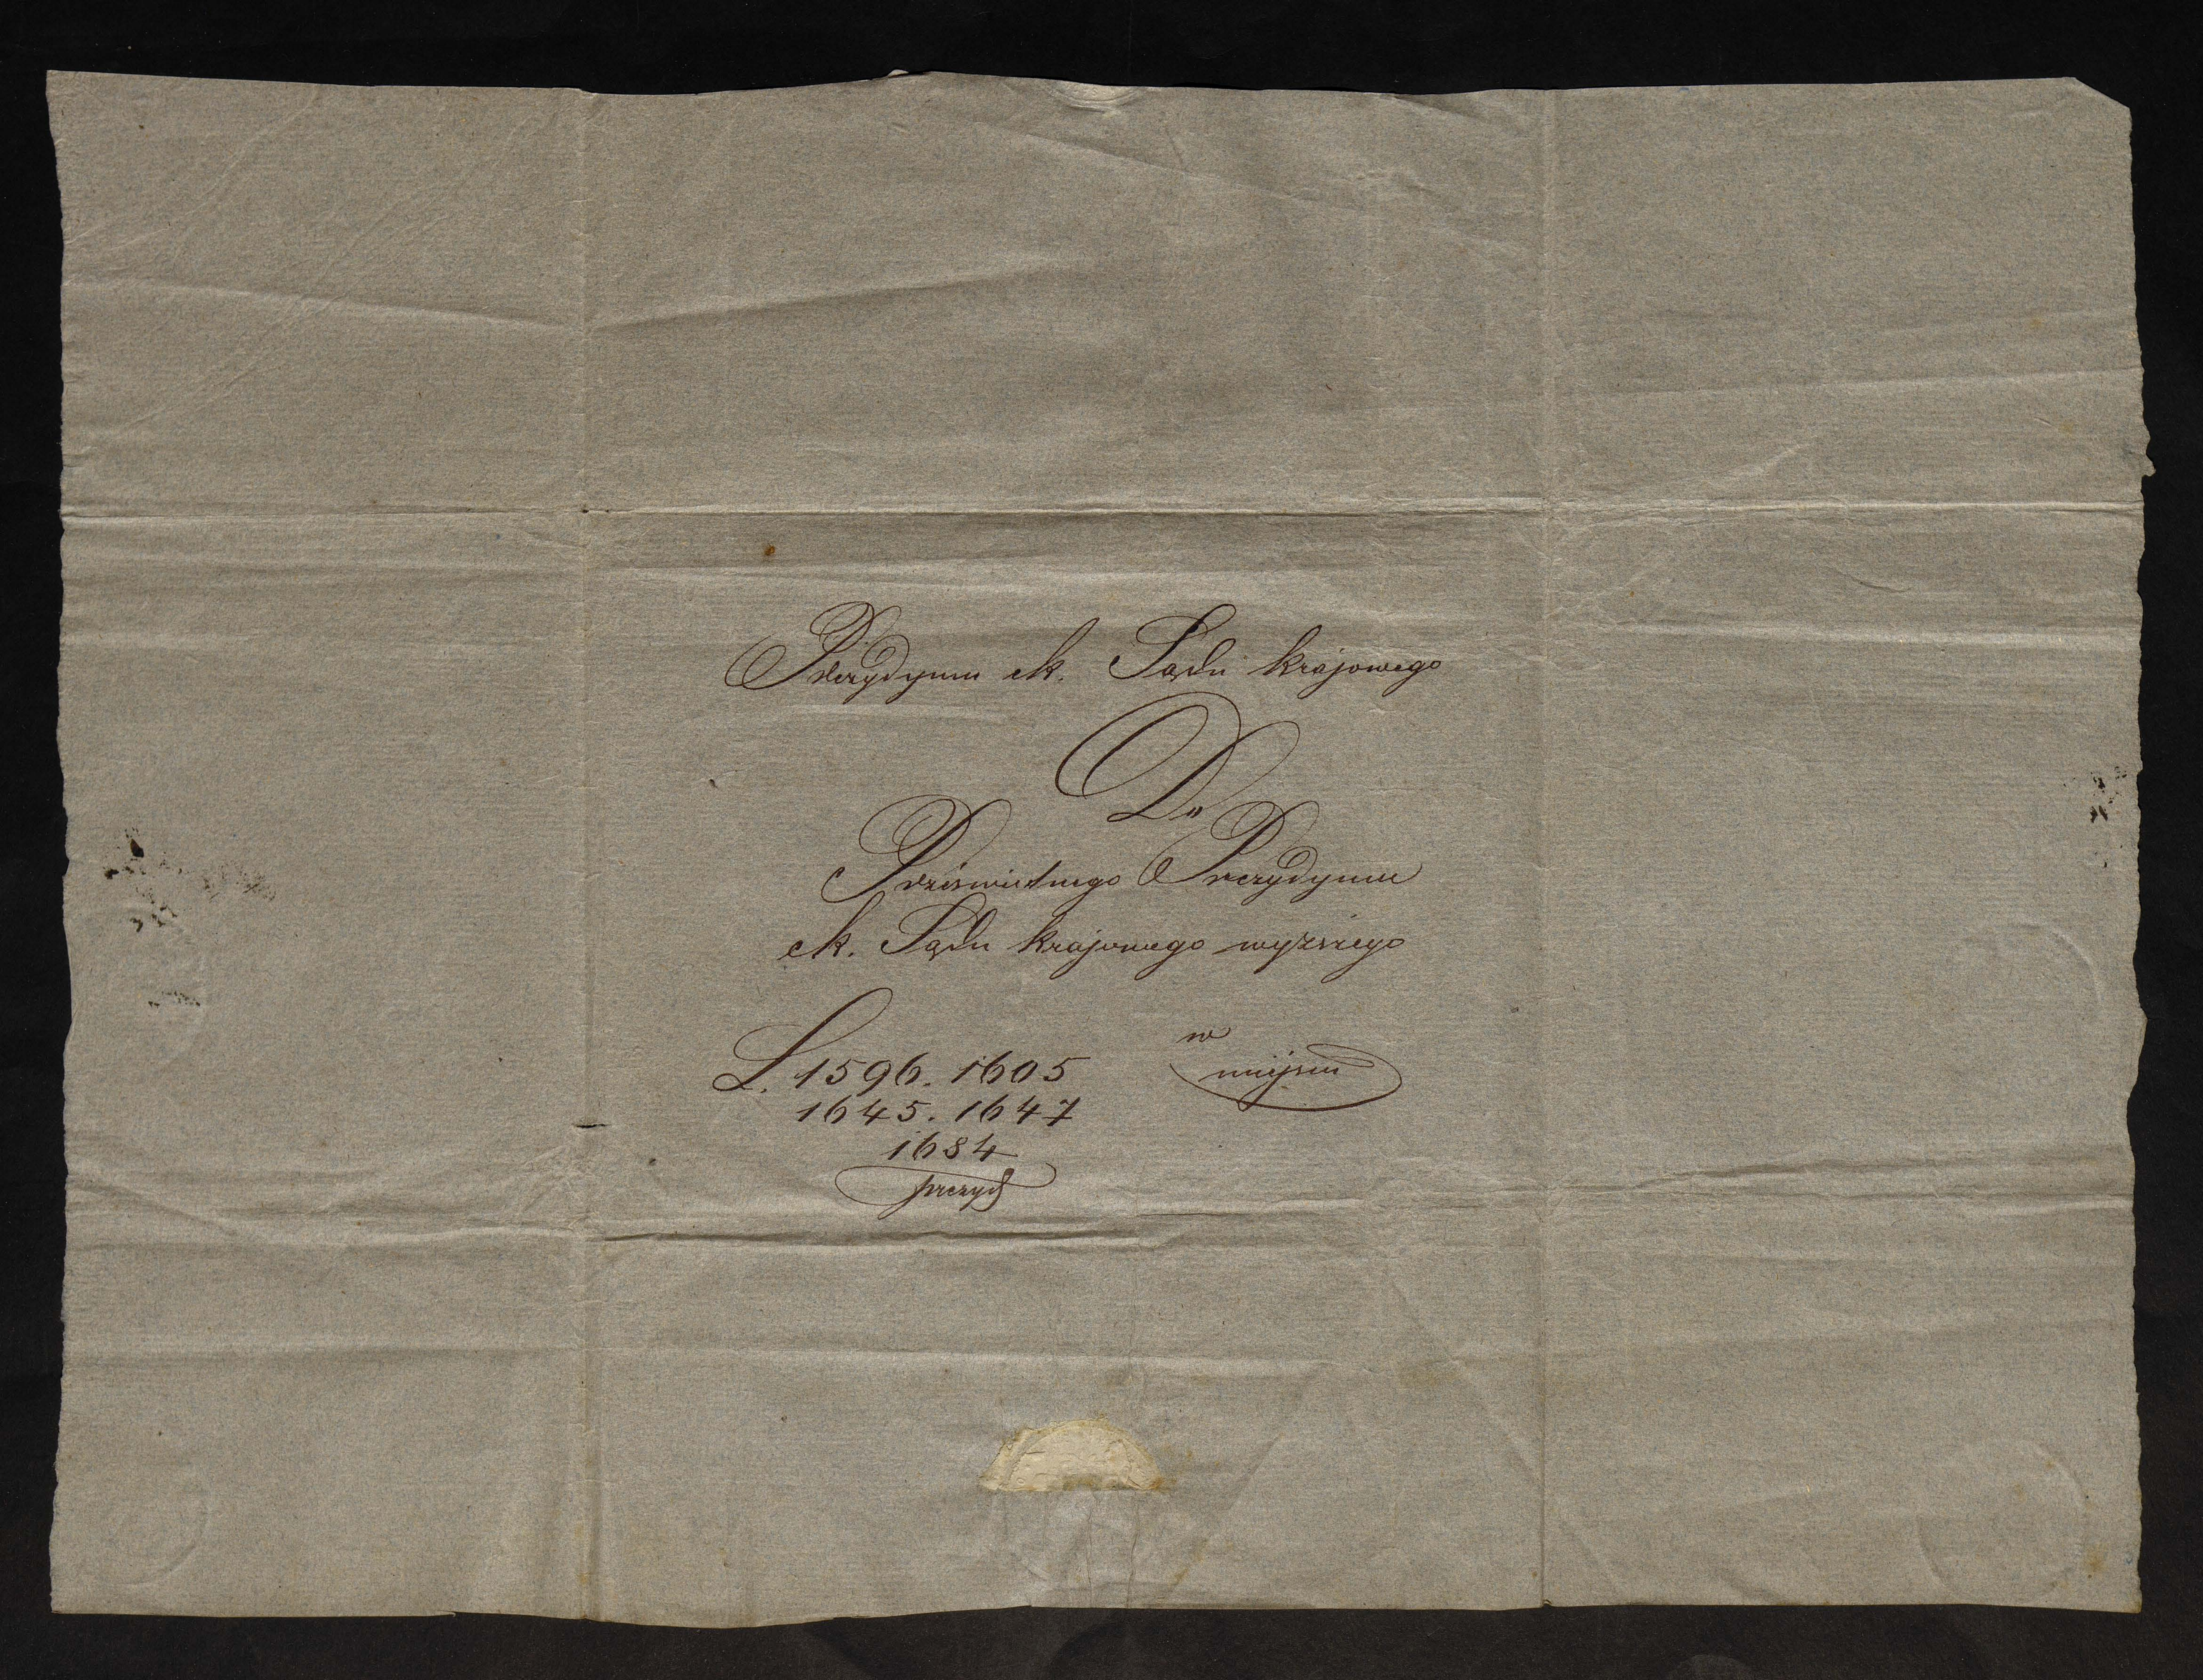 Prezydyum ck. Sądu krajowego
Do
Prześwietnego Prezydyum
ck. Sądu krajowego wyższego
w
miejscu
L. 1596. 1605
1645. 1647
1684
prezyd